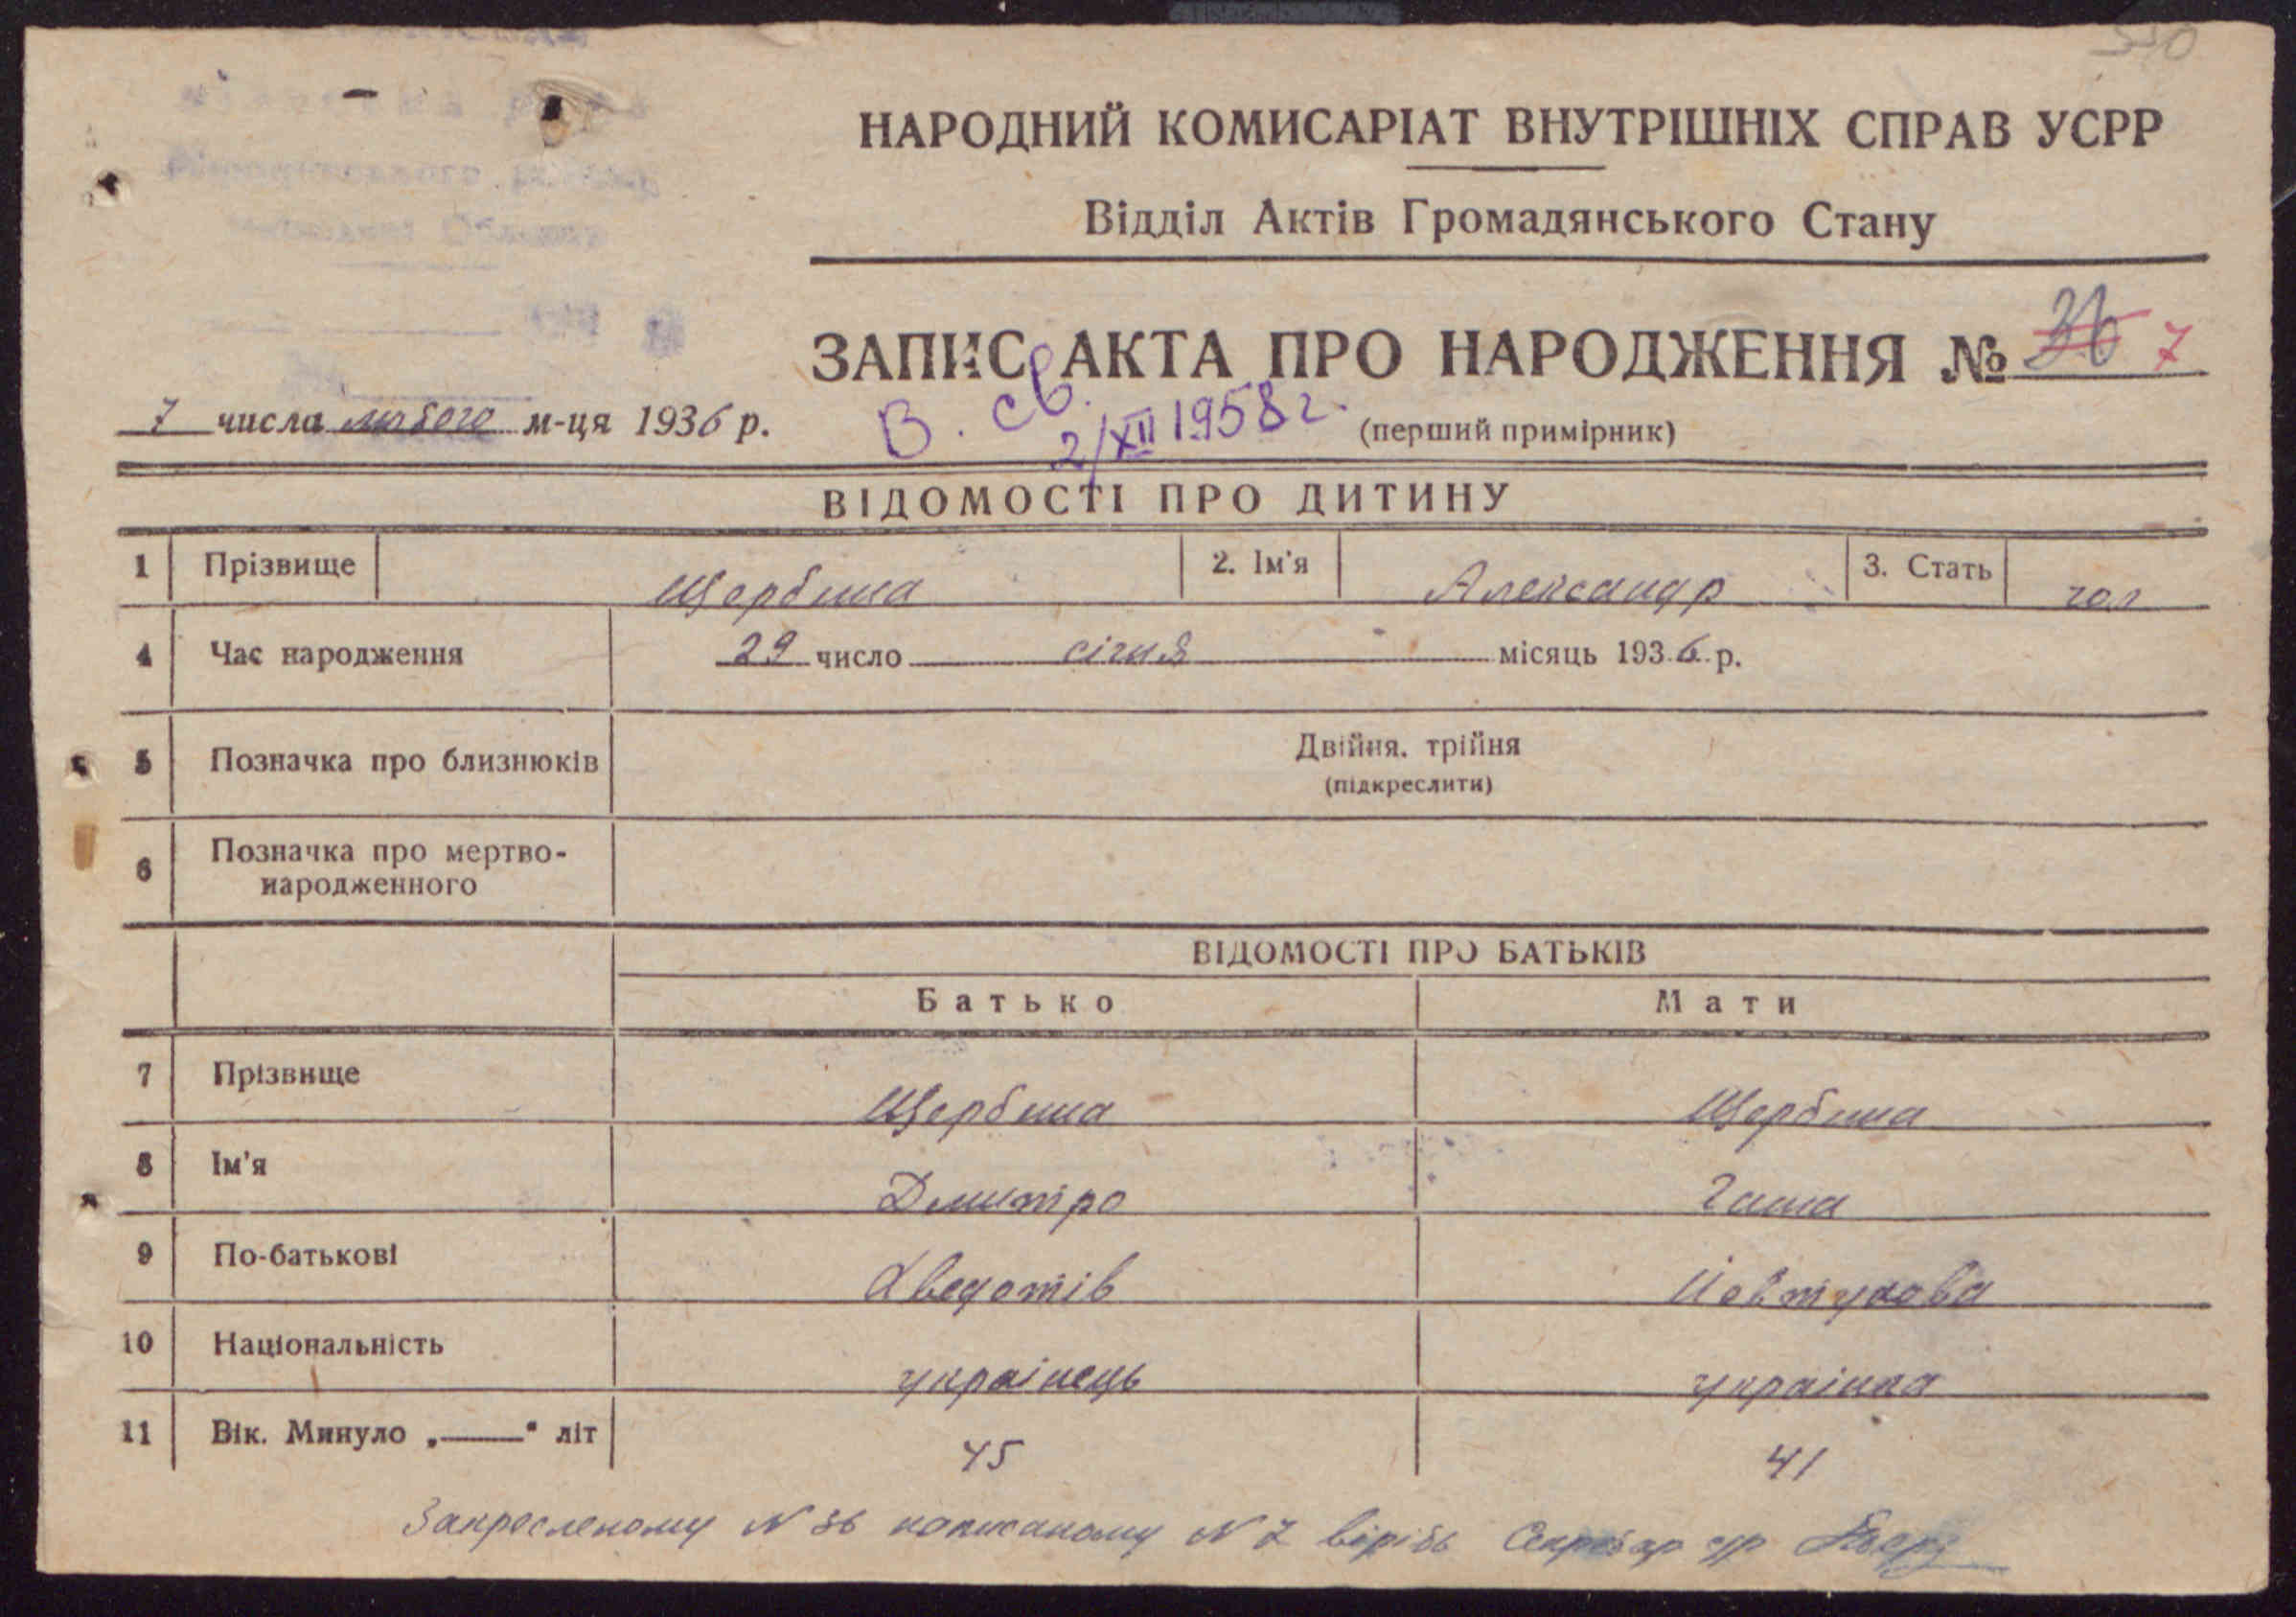 НАРОДНИЙ КОМИСАРІАТ ВНУТРІШНІХ СПРАВ УСРР
Відділ Актів Громадянського Стану
ЗАПИС АКТА ПРО НАРОДЖЕННЯ № 36 7
7 числа лютого м-ця 1936 р.
В. св. 2/XII 1958 г.
(перший примірник)
ВІДОМОСТІ ПРО ДИТИНУ
1 Прізвище Щербина 2. Ім'я Александр 3. Стать чол
4 Час народження 29 число січня місяць 1936 р.
5 Позначка про близнюків Двійня, трійня
(підкреслити)
6 Позначка про мертво-
народженного
ВІДОМОСТІ ПРО БАТЬКІВ
Батько Мати
7 Прізвище Щербина Щербина
8 Ім'я Дмитро Ганна
9 По-батькові Хведотів Йовтухова
10 Національність українець українка
11 Вік. Минуло „——" літ 45 41
Закресленому N 36 написаному N 7 вірить Секретар с/р